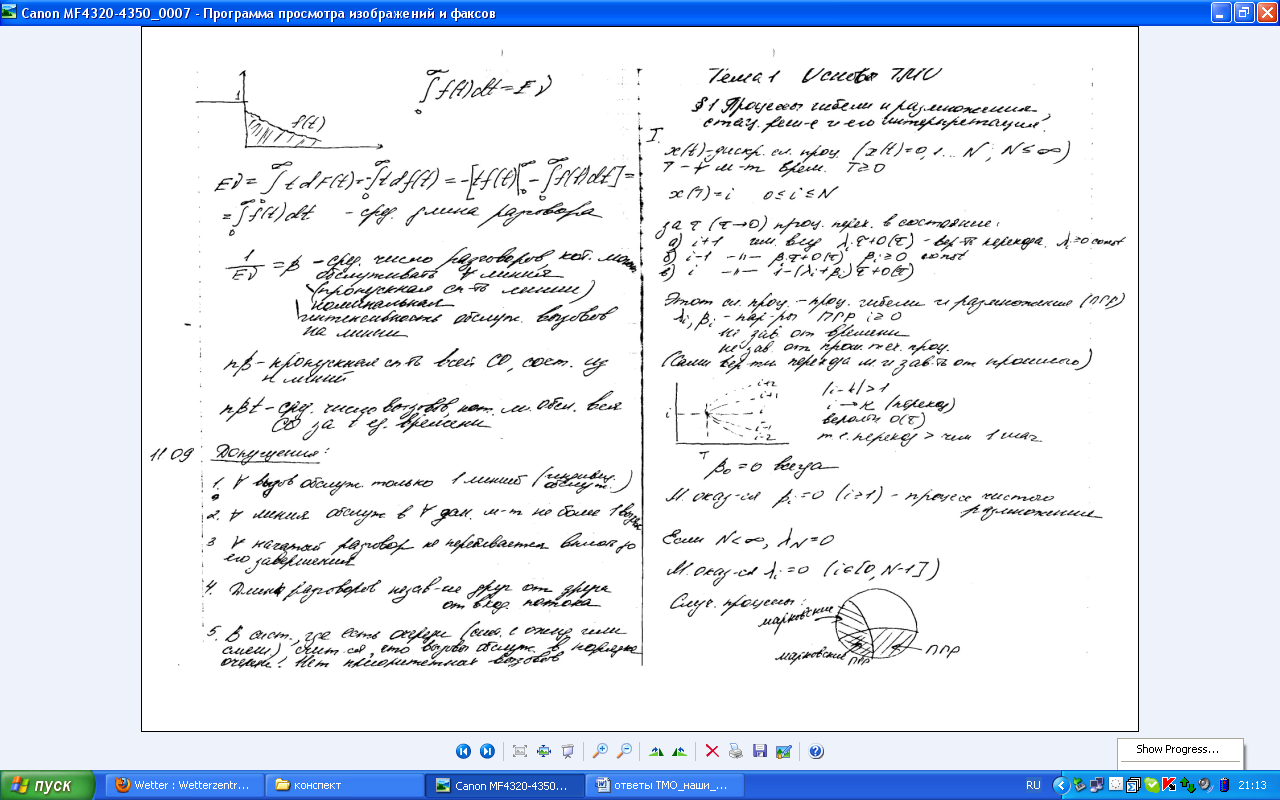 Canon MF4320-4350_0007 - Программа просмотра изображений и факсов
1
f(t)
∫₀^∞ f(t)dt = Eν
Eν = ∫₀^∞ t dF(t) = -∫₀^∞ t df(t) = -[t f(t)|₀^∞ - ∫₀^∞ f(t)dt] =
= ∫₀^∞ f(t)dt - сред. длина разговора
1/Eν = β - сред. число разговоров, кот. может
обслуживать ∀ линия
(пропускная сп-ть линии)
номинальная
интенсивность обслуж. вызовов
на линии
nβ - пропускная сп-ть всей СО, сост. из
n линий
nβt - сред. число вызовов, кот. м. обсл. вся
СО за t ед. времени
11 09 Допущения:
1. ∀ вызов обслуж. только 1 линией (индивид. обслуж.)
2. ∀ линия обслуж в ∀ дан. м-т не более 1 вызова
3 ∀ начатый разговор не перебивается вплоть до
его завершения
4. Длины разговоров незав-ие друг от друга
от вход. потока
5. В сист., где есть очереди (сист. с ожид или
смеш) счит-ся, что вызовы обслуж. в порядке
очереди! Нет приоритетная вызовов
Тема 1 Основы ТМО
§1 Процессы гибели и размножения,
стац. реш-е и его интерпретация.
I
x(t) - дискр. сл. проц. (x(t)=0,1... N, N≤∞)
T - ∀ м-т врем. T≥0
x(T)=i 0≤i≤N
за τ (τ→0) проц. перех. в состояние:
а) i+1 λᵢτ+0(τ) - вер-ть перехода. λᵢ≥0 const
б) i-1 -"- βᵢτ+0(τ) βᵢ≥0 const
в) i -"- 1-(λᵢ+βᵢ)τ+0(τ)
Этот сл. проц. - проц. гибели и размножения (ПГР)
λᵢ, βᵢ - пар-ры ПГР i≥0
не зав. от времени
не зав. от прош. теч. проц.
(Сами вер-ти перехода м. и зав-ть от прошлого)
i
i+2
i+1
i-1
i-2
T
|i-k|>1
i → k (переход)
вероятн 0(τ)
т.е. переход > чем 1 шаг
β₀=0 всегда
М. оказ-ся βᵢ=0 (i≥1) - процесс чистого
размножения
Если N<∞, λ_N=0
М. оказ-ся λᵢ=0 (i∈[0, N-1])
Случ. процессы:
марковские
марковские
ПГР
ПГР
Show Progress...
пуск
Wetter : Wetterzentr...
конспект
Canon MF4320-4350...
ответы ТМО_наши_...
RU
21:13